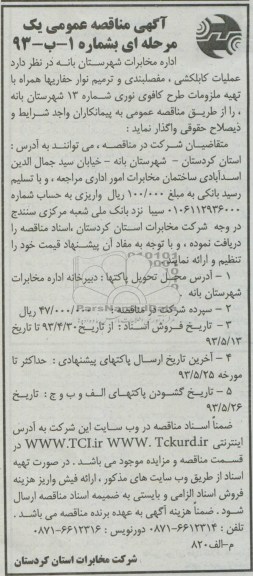 آگهی مناقصه عمومی یک
مرحله ای بشماره ۱-ب-۹۳
اداره مخابرات شهرستان بانه در نظر دارد
عملیات کابلکشی ، مفصلبندی و ترمیم نوار حفاریها همراه با
تهیه ملزومات طرح کافوی نوری شماره ۱۳ شهرستان بانه
، را از طریق مناقصه عمومی به پیمانکاران واجد شرایط و
ذیصلاح حقوقی واگذار نماید :
متقاضیان شرکت در مناقصه ، می توانند به آدرس :
استان کردستان - شهرستان بانه - خیابان سید جمال الدین
اسدآبادی ساختمان مخابرات امور اداری مراجعه ، و با تسلیم
رسید بانکی به مبلغ ۱۰۰/۰۰۰ ریال واریزی به حساب شماره
۰۱۰۶۱۱۲۹۳۶۰۰۰ سیبا نزد بانک ملی شعبه مرکزی سنندج
در وجه شرکت مخابرات استان کردستان ، اسناد مناقصه را
دریافت نموده ، و با توجه به مفاد آن پیشنهاد قیمت خود را
تنظیم و ارائه نمایند
۱ - آدرس محل تحویل پاکتها : دبیرخانه اداره مخابرات
شهرستان بانه
۲ - سپرده شرکت در مناقصه : ۴۷/۰۰۰/۰۰۰ ریال
۳ - تاریخ فروش اسناد : از تاریخ ۹۳/۴/۳۰ تا تاریخ
۹۳/۵/۱۳
۴ - آخرین تاریخ ارسال پاکتهای پیشنهادی : حداکثر تا
مورخه ۹۳/۵/۲۵
۵ - تاریخ گشودن پاکتهای الف و ب و ج : تاریخ
۹۳/۵/۲۶
ضمناً اسناد مناقصه در وب سایت این شرکت به آدرس
اینترنتی WWW.TCI.ir WWW. Tckurd.ir در
قسمت مناقصه و مزایده موجود می باشد . در صورت تهیه
اسناد از طریق وب سایت های مذکور ، ارائه فیش واریز هزینه
فروش اسناد الزامی و بایستی به ضمیمه اسناد مناقصه ارسال
شود . ضمناً هزینه آگهی به عهده برنده مناقصه می باشد .
تلفن : ۶۶۱۲۳۱۴-۰۸۷۱ دورنویس : ۶۶۱۲۳۱۶-۰۸۷۱
م-الف ۸۲۰
شرکت مخابرات استان کردستان